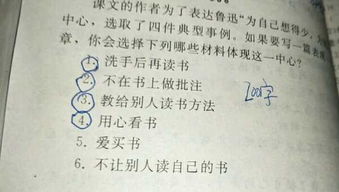 课文的作者为了表达鲁迅“为自己想得少，为
中心，选取了四件典型事例。如果要写一篇
章，你会选择下列哪些材料体现这一中心？
1. 洗手后再读书
2. 不在书上做批注
3. 教给别人读书方法
4. 用心看书
5. 爱买书
6. 不让别人读自己的书
200字